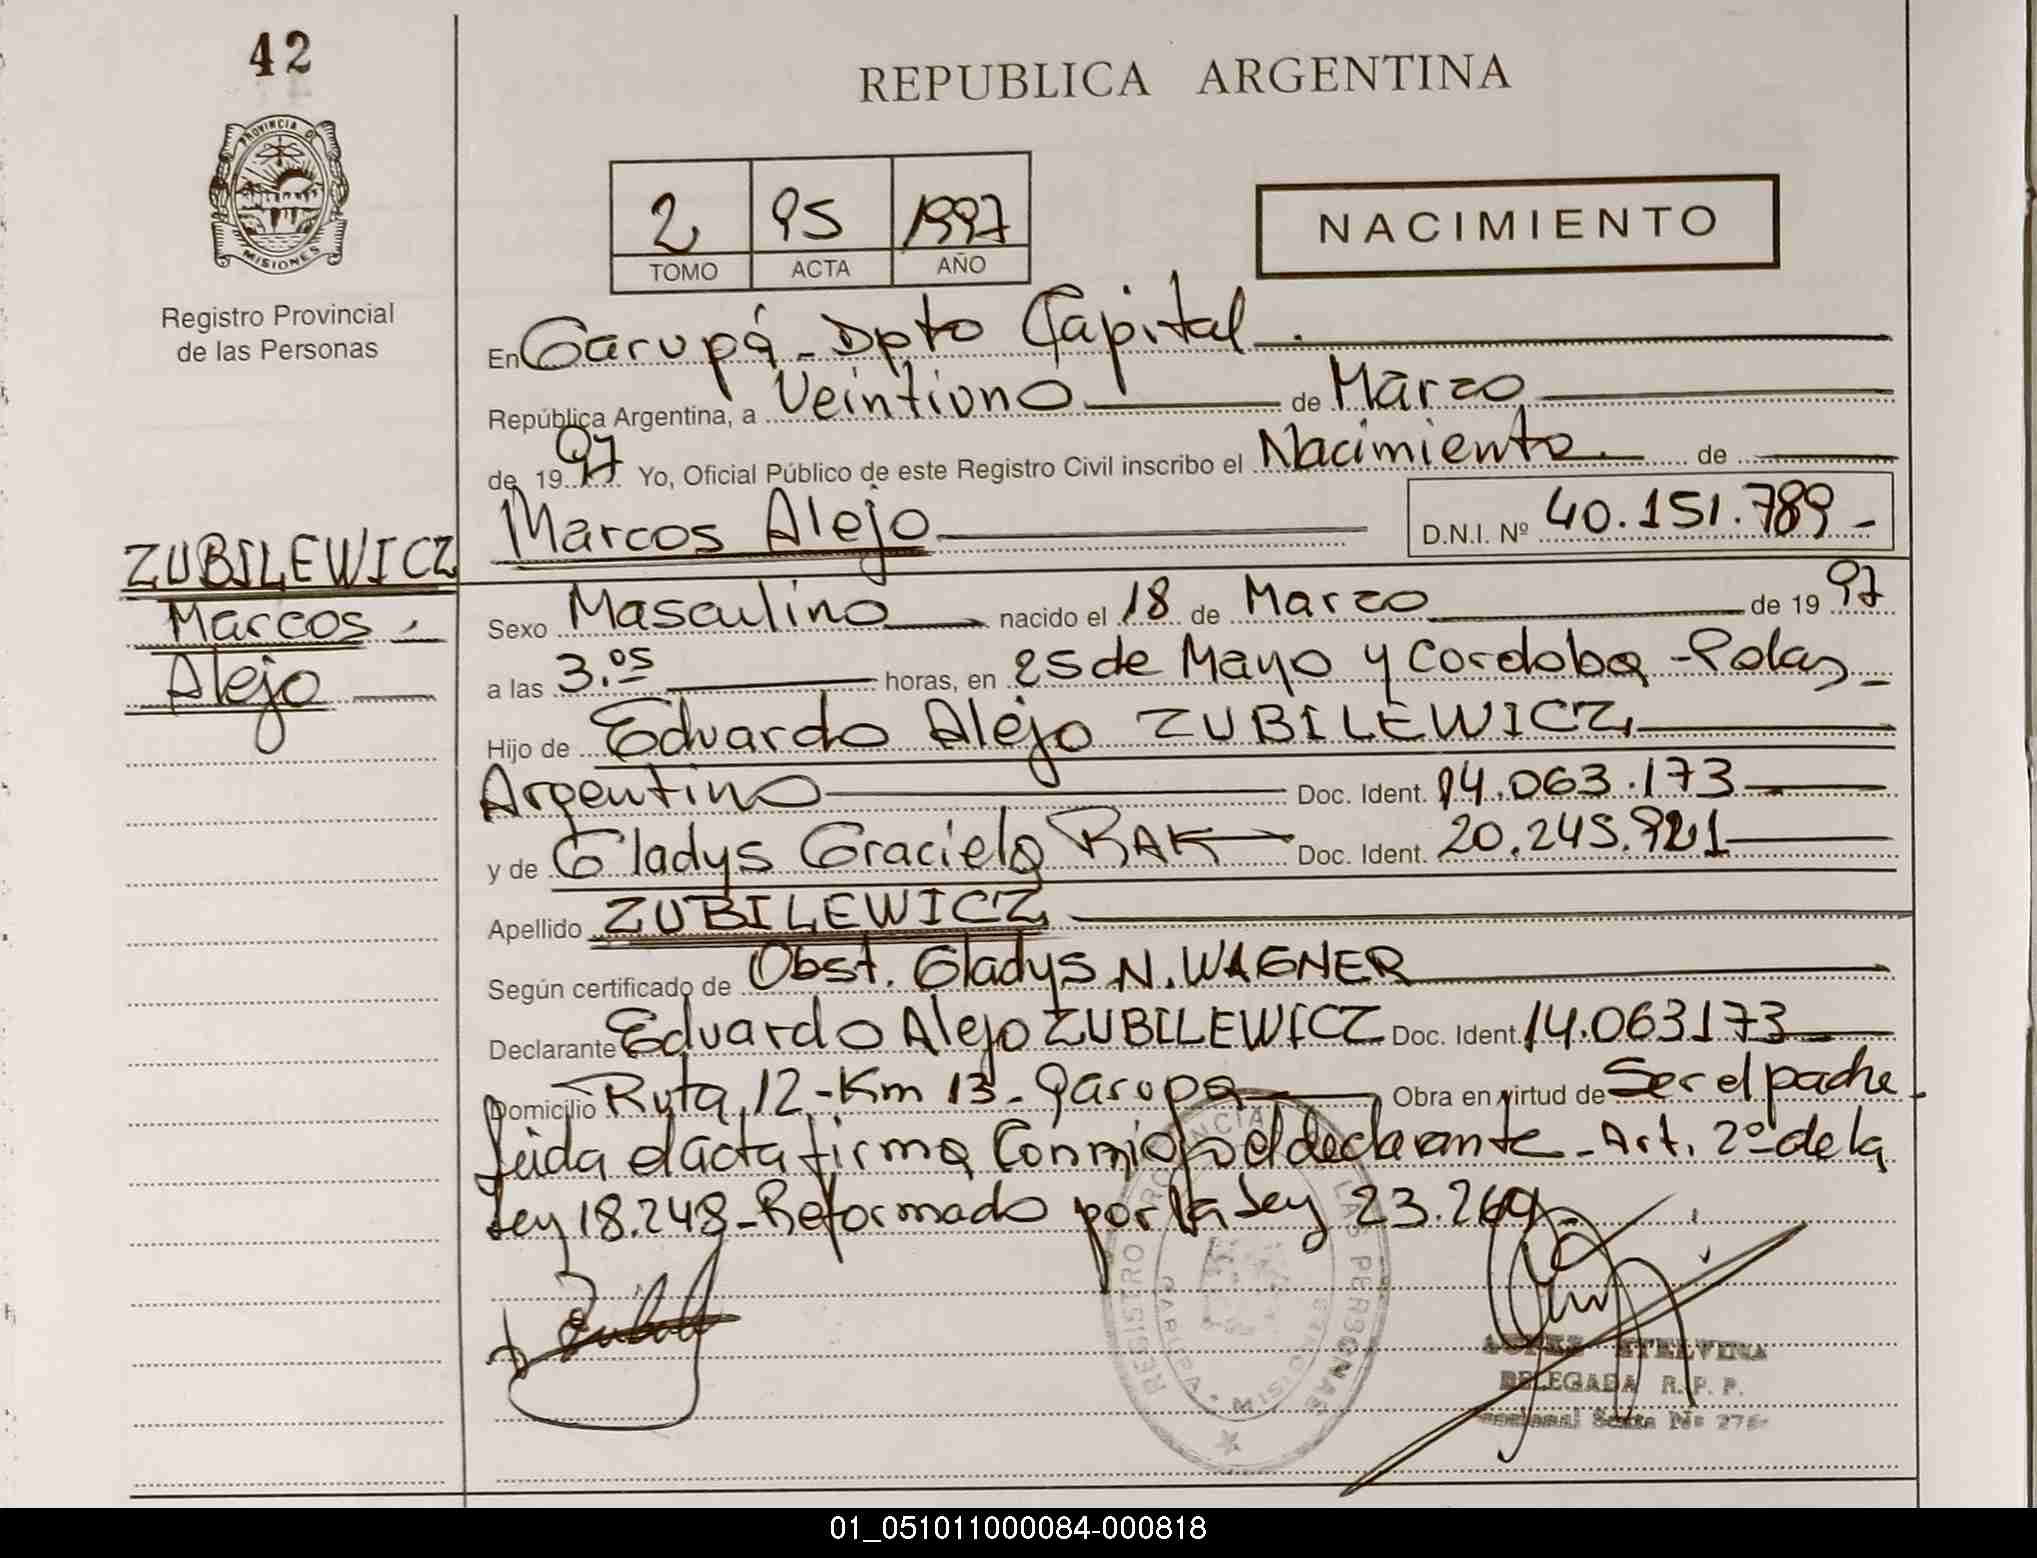 42
PROVINCIA DE
MISIONES
Registro Provincial
de las Personas
REPUBLICA ARGENTINA
2 95 1997
TOMO ACTA AÑO
NACIMIENTO
En Garupá - Dpto Capital
República Argentina, a Veintiuno de Marzo
de 1997 Yo, Oficial Público de este Registro Civil inscribo el Nacimiento de
Marcos Alejo D.N.I. Nº 40.151.789-
ZUBILEWICZ
Marcos
Alejo
Sexo Masculino nacido el 18 de Marzo de 1997
a las 3.05 horas, en 25 de Mayo y Cordoba - Pdas
Hijo de Eduardo Alejo ZUBILEWICZ
Argentino Doc. Ident. 14.063.173
y de Gladys Graciela RAK Doc. Ident. 20.245.921
Apellido ZUBILEWICZ
Según certificado de Obst. Gladys N. WAGNER
Declarante Eduardo Alejo ZUBILEWICZ Doc. Ident. 14.063173
Domicilio Ruta 12 - Km 13 - Garupa Obra en virtud de Ser el padre
Leida el acta firma Conmigo el declarante - Art. 2º de la
Ley 18.248 - Reformado por la Ley 23.269-
REGISTRO PROVINCIAL LAS PERSONAS
GARUPA MISIONES
LOPEZ ETELVINA
DELEGADA R. P. P.
Seccional Sexta Nº 276
01_051011000084-000818